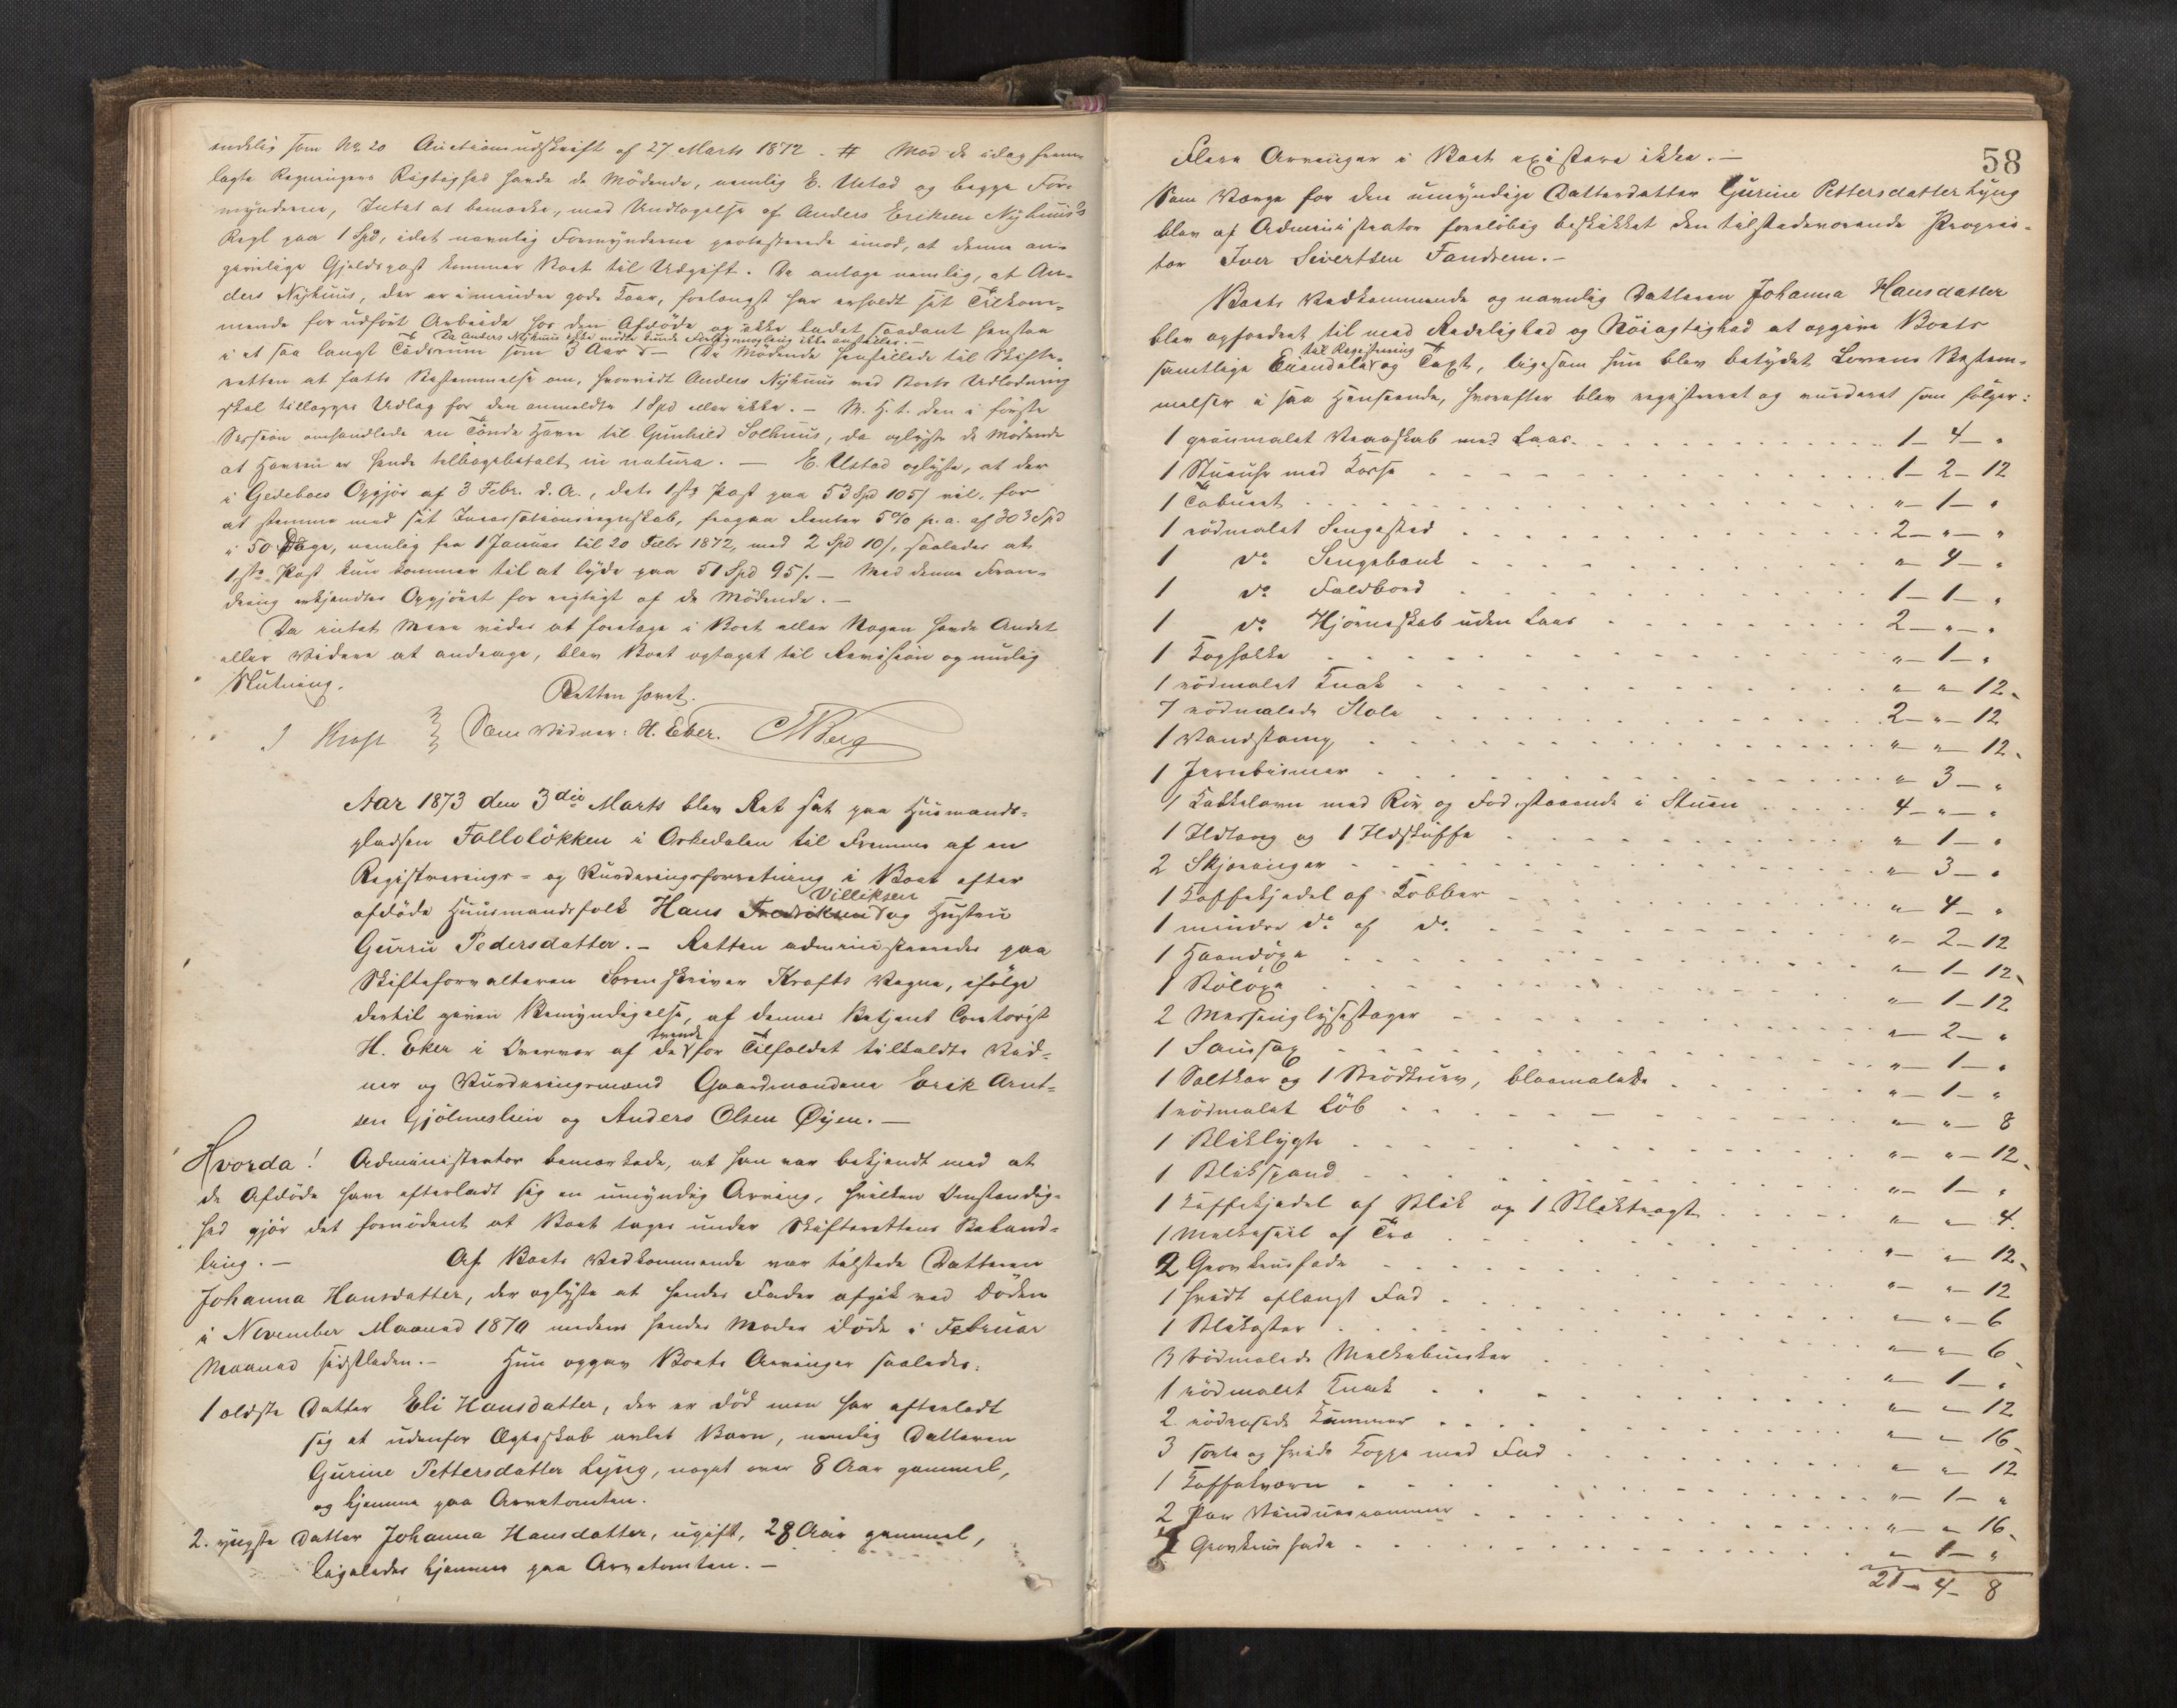 endelig som No 20 Auctionsudskrift af 27 Marts 1872. # Mod de idag frem-
lagte Regningers Rigtighed havde de Mødende, nemlig E. Ustad og begge For-
mynderne, Intet at bemærke, med Undtagelse af Anders Eriksen Nyhuus's
Regl paa 1 Spd, idet nemlig Formynderne protesterede imod, at denne an-
givelige Gjeldspost kommer Boet til Udgift. De antage nemlig, at An-
ders Nyhuus, der er i mindre gode Kaar, forlængst har erholdt sit Tilkom-
mende for udført Arbeide hos den Afdøde og ikke ladet saadant henstaa
Da Anders Nyhuus ikke mødte kunde ikke anstilles.-
i et saa langt Tidsrum som 3 Aar. - De Mødende henstillede til Skifte-
retten at fatte Bestemmelse om, hvorvidt Anders Nyhuus ved Boets Udlodning
skal tillægges Udlag for den anmeldte 1 Spd eller ikke. - M. H. t. den i første
Session omhandlede en Tønde Havre til Gunhild Solhuus, da oplyste de Mødende
at Havren er hende tilbagebetalt in natura. - E. Ustad oplyste, at der
i Gedeboes Opgjør af 3 Febr. d. A., dets 1ste Post paa 53 Spd 105/ vil, for
at stemme med sit Incassationsregnskab, fragaa Renter 5% p. a. af 303 Spd
i 50 Dage, nemlig fra 1 Januar til 20 Febr 1872, med 2 Spd 10/, saaledes at
1ste Post kun kommer til at lyde paa 51 Spd 95/. - Med denne Foran-
dring erkjendtes Opgjøret for rigtigt af de Mødende. -
Da intet Mere vides at foretage i Boet eller Nogen havde Andet
eller Videre at andrage, blev Boet optaget til Revision og mulig
Slutning.
Retten hævet.
J Kraft } Som Vidner: H. Eker. Berg
Aar 1873 den 3die Marts blev Ret sat paa Huusmands-
pladsen Folloløkken i Orkedalen til Fremme af en
Registrerings- og Vurderingsforretning i Boet efter
Villiksen
afdøde Huusmandsfolk Hans Fredriksen og Hustru
Gurru Pedersdatter. - Retten administreredes paa
Skifteforvalteren Sorenskriver Krafts Vegne, ifølge
dertil given Bemyndigelse, af dennes Betjent Contorist
tvende
H. Eker i Overvær af de for Tilfældet tilkaldte Vid-
ner og Vurderingsmænd Gaardmændene Erik Arnt-
sen Gjølmeslien og Anders Olsen Øyen. -
Hvorda! Administrator bemærkede, at han var bekjendt med at
de Afdøde have efterladt sig en umyndig Arving, hvilken Omstændig-
hed gjør det fornødent at Boet tages under Skifterettens Behand-
ling. - Af Boets Vedkommende var tilstede Datteren
Johanna Hansdatter, der oplyste at hendes Fader afgik ved Døden
i November Maaned 1870 medens hendes Moder døde i Februar
Maaned sidstleden. - Hun opgav Boets Arvinger saaledes:
1 ældste Datter Eli Hansdatter, der er død men har efterladt
sig et udenfor Ægteskab avlet Barn, nemlig Datteren
Gurine Pettersdatter Lyng, noget over 8 Aar gammel,
og hjemme paa Arvetomten.
2. yngste Datter Johanna Hansdatter, ugift, 28 Aar gammel,
ligeledes hjemme paa Arvetomten. -
58
Flere Arvinger i Boet existere ikke. -
Som Værge for den umyndige Datterdatter Gurine Pettersdatter Lyng
blev af Administrator foreløbig beskikket den tilstedeværende Proprie-
tær Iver Sivertsen Fandrem. -
Boets Vedkommende og navnlig Datteren Johanna Hansdatter
blev opfordret til med Redelighed og Nøiagtighed at opgive Boets
til Registrering
samtlige Eiendele og Taxt, ligesom hun blev betydet Lovens Bestem-
melser i saa Henseende, hvorefter blev registreret og vurderet som følger:
1 grønmalet Vægskab med Laas 1 - 4 - "
1 Stueuhr med Kasse 1 - 2 - 12
1 Taburet " - 1 - "
1 rødmalet Sengested 2 - " - "
1 do Sengebænk " - 4 - "
1 do Faldbord 1 - 1 - "
1 do Hjørneskab uden Laas 2 - " - "
1 Kophylde " - 1 - "
1 rødmalet Krak " - " - 12
7 rødmalede Stole 2 - " - 12
1 Vandstamp " - " - 12
1 Jernbismer " - 3 - "
1 Kakkelovn med Rør og Fod, staaende i Stuen 4 - " - "
1 Ildtang og 1 Ildskuffe " - 1 - "
2 Skjæringer " - 3 - "
1 Kaffekjedel af Kobber " - 4 - "
1 mindre do af do " - 2 - 12
1 Haandøxe " - 1 - 12
1 Buløxe " - 1 - 12
2 Messinglysestager " - 2 - "
1 Sausax " - 1 - "
1 Saltkar og 1 Brødkurv, blaamalede " - 1 - "
1 rødmalet Løb " - " - 8
1 Bliklygte " - " - 12
1 Blikspand " - 1 - "
1 Kaffekjedel af Blik og 1 Bliktragt " - " - 4
1 Melkesiil af Træ " - " - 12
2 Grovkrusfade " - " - 12
1 hvidt aflangt Fad " - " - 6
1 Blikøster " - " - 6
3 rødmalede Melkebunker " - 1 - "
1 rødmalet Krak " - " - 12
2 rødrosede Kummer " - " - 16
3 sorte og hvide Koppe med Fad " - " - 12
1 Kaffekværn " - 1 - "
2 Par Vinduesrammer " - " - 16
4 Grovkrusfade " - 1 - "
21 - 4 - 8